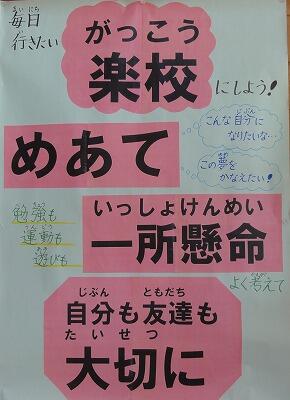 まいにち
毎日
い
行きたい
がっこう
楽校
にしよう!
めあて
じぶん
こんな自分に
なりたいな…
ゆめ
この夢を
かなえたい!
べんきょう
勉強も
うんどう
運動も
あそ
遊びも
いっしょけんめい
一所懸命
かんが
よく考えて
じぶん ともだち
自分も友達も
たいせつ
大切に